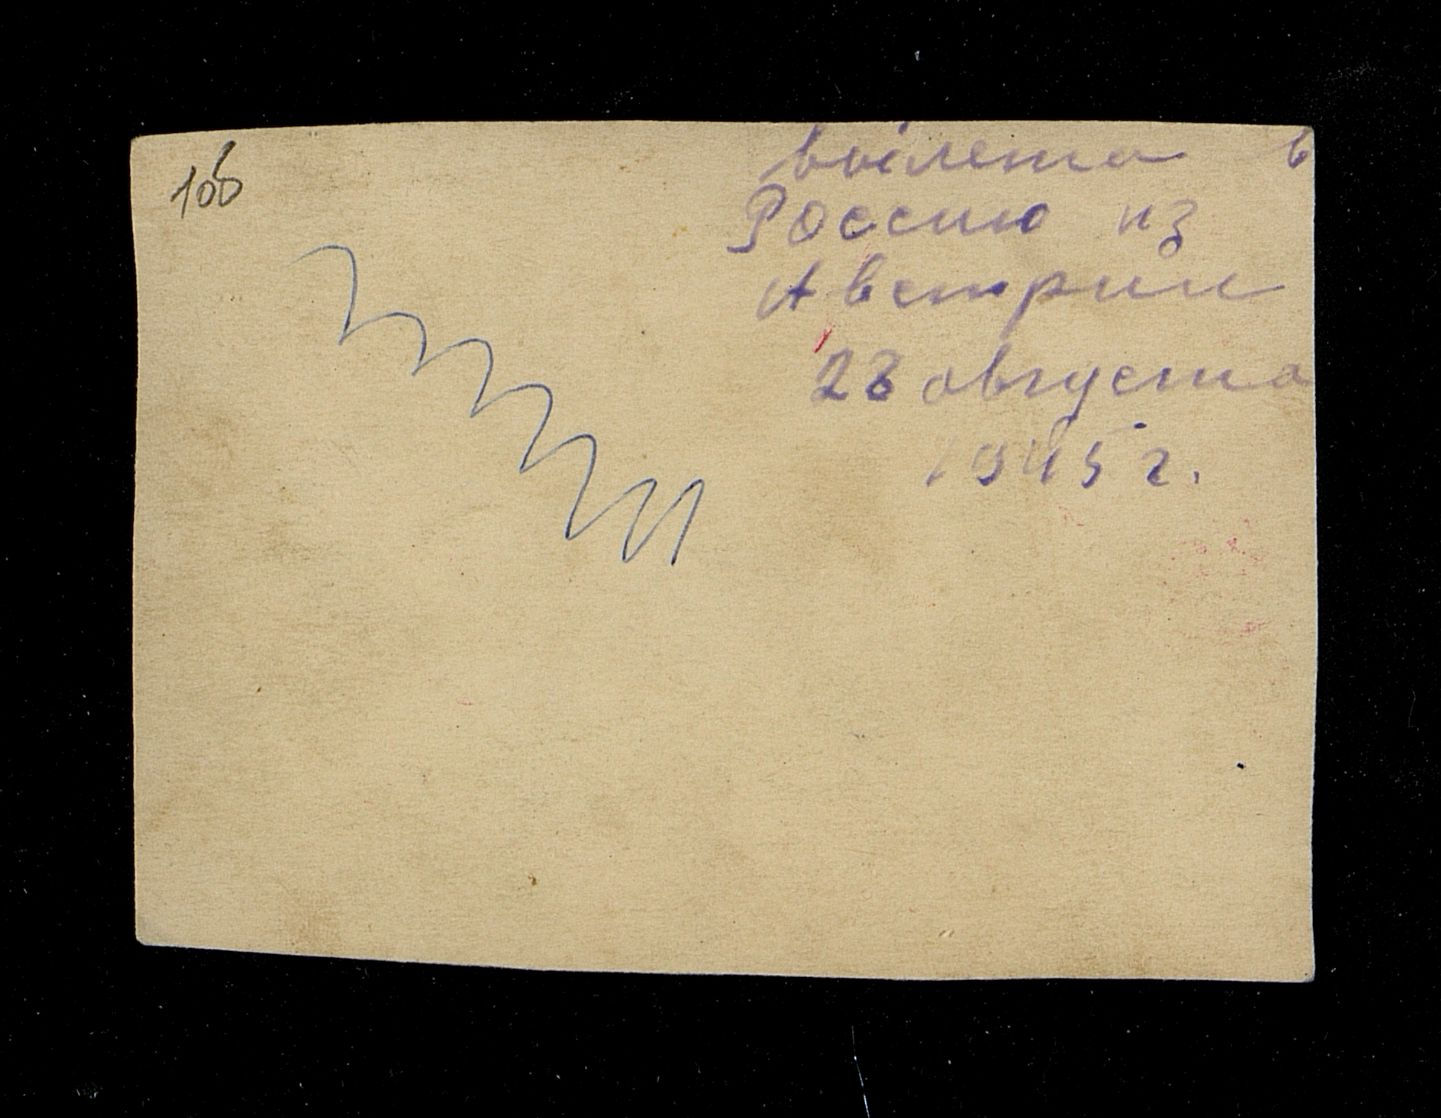 106
вылета в
Россию из
Австрии
28 августа
1945 г.